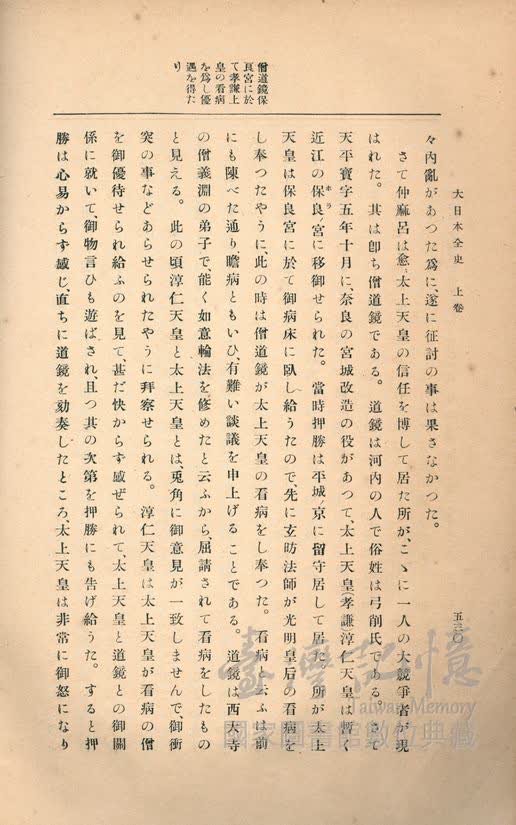 大日本全史 上卷
五三〇
僧道鏡保
良宮に於
て孝謙上
皇の看病
を爲し優
遇を得た
り
々內亂があつた爲に、遂に征討の事は果さなかつた。
さて仲麻呂は愈〻太上天皇の信任を博して居た所が、こゝに一人の大競爭者が現
はれた。其は卽ち僧道鏡である。道鏡は河內の人で俗姓は弓削氏である。さて
天平寳字五年十月に、奈良の宮城改造の役があつて、太上天皇(孝謙)淳仁天皇は暫く
近江の保良ノ宮に移御せられた。當時押勝は平城ノ京に留守居して居た。所が太上
ホラ
天皇は保良宮に於て御病床に臥し給うたので、先に玄昉法師が光明皇后の看病を
し奉つたやうに、此の時は僧道鏡が太上天皇の看病をし奉つた。看病と云ふは前
にも陳べた通り瞻病ともいひ、有難い談議を申上げることである。道鏡は西大寺
の僧義淵の弟子で、能く如意輪法を修めたと云ふから、屈請されて看病をしたもの
と見える。此の頃淳仁天皇と太上天皇とは、兎角に御意見が一致しませんで、御衝
突の事などあらせられたやうに拜察せられる。淳仁天皇は太上天皇が看病の僧
を御優待せられ給ふのを見て、甚だ快からず感ぜられて、太上天皇と道鏡との御關
係に就いて、御物言ひも遊ばされ、且つ其の次第を押勝にも吿げ給うた。すると押
勝は心易からず感じ、直ちに道鏡を劾奏したところ、太上天皇は非常に御怒になり
臺灣記憶
Taiwan Memory
國家圖書館數位典藏